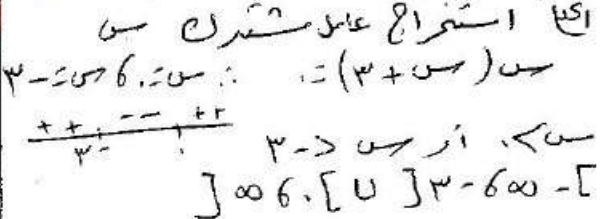 استخراج عامل مشترك س
س(س+٣)=٠ ∴ س=٠، س=-٣
++ -- ++
-٣ ٠
س>٠ أو س<-٣
]-∞، -٣[ ∪ ]٠، ∞[